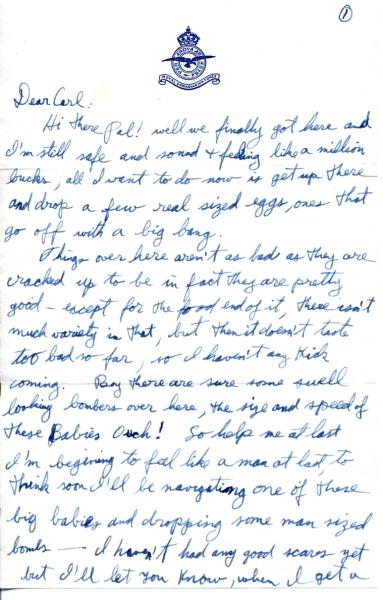 ①
ROYAL CANADIAN AIR FORCE
Dear Carl.
Hi There Pal! well we finally got here and
I'm still safe and sound & feeling like a million
bucks, all I want to do now is get up there
and drop a few real sized eggs, ones that
go off with a big bang.
Things over here aren't as bad as they are
cracked up to be in fact they are pretty
good - except for the food end of it, there isn't
much variety in that, but then it doesn't taste
too bad so far, so I haven't any kick
coming. Boy there are sure some swell
looking bombers over here, the size and speed of
these Babies Ouch! So help me at last
I'm begining to feel like a man at last to
think soon I'll be navigating one of these
big babies and dropping some man sized
bombs — I haven't had any good scares yet
but I'll let you know, when I get a